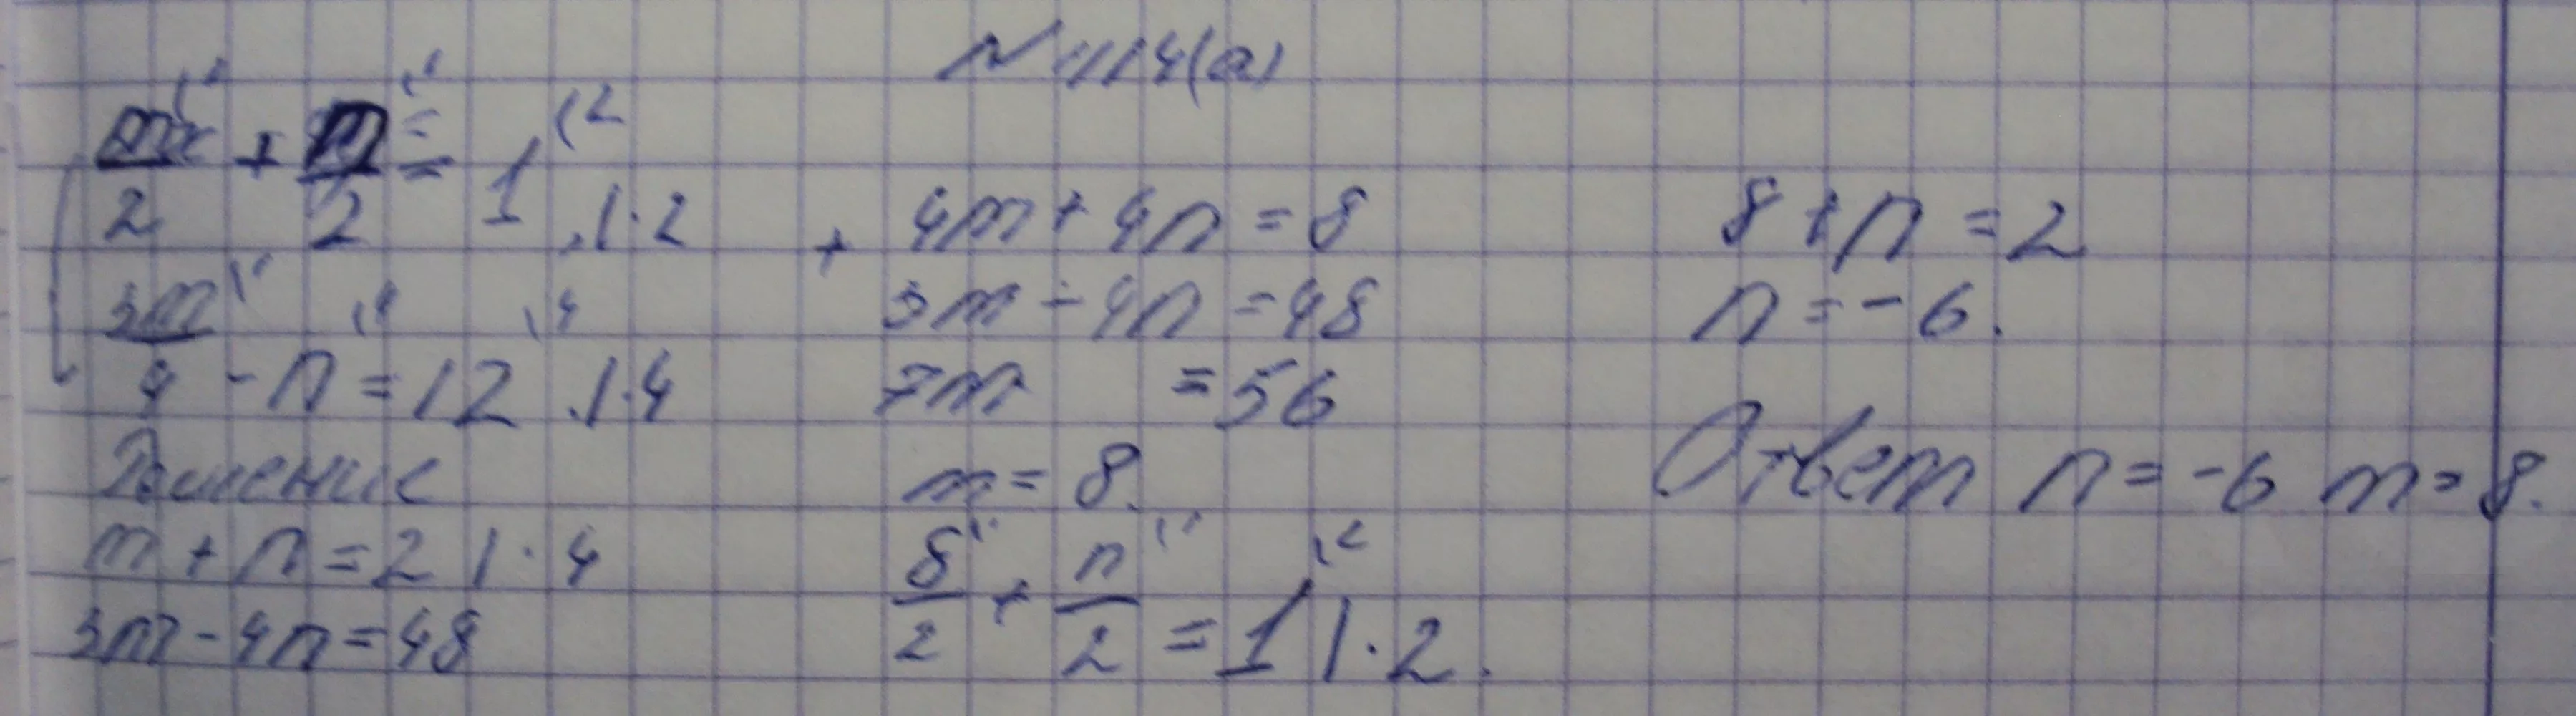 №1114(а)
m/2 + n/2 = 1 |·2
3m/4 - n = 12 |·4
Решение
m + n = 2 |·4
3m - 4n = 48
+ 4m + 4n = 8
3m - 4n = 48
7m = 56
m = 8.
8/2 + n/2 = 1 |·2.
8 + n = 2
n = -6.
Ответ n = -6 m = 8.